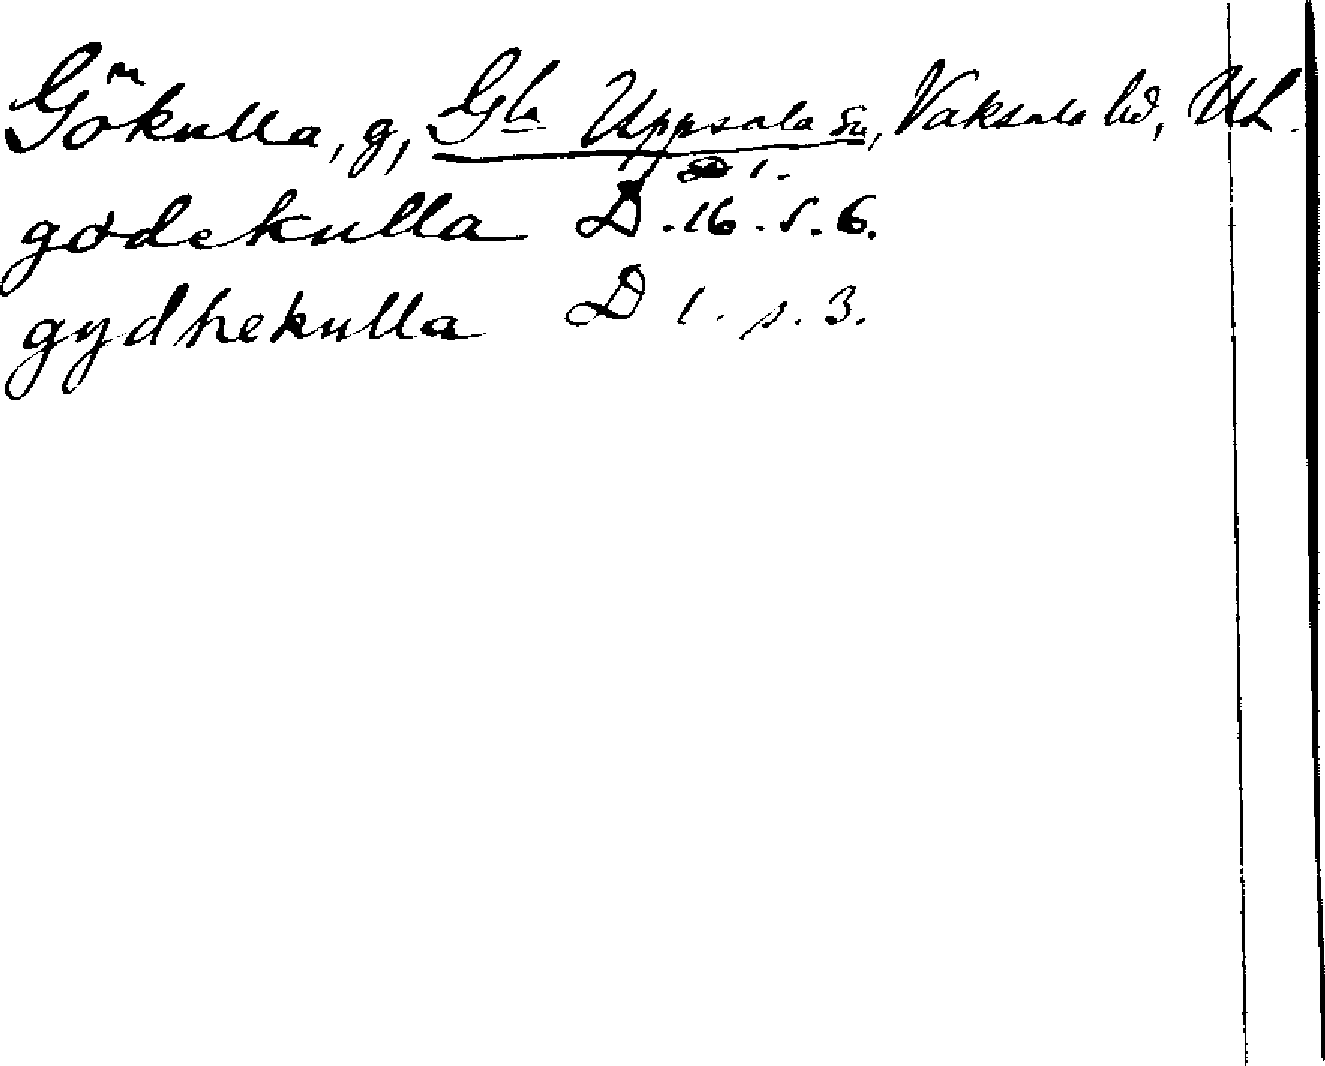 Gökulla, g, Gla Uppsala sn, Vaksala hd, UL.
1.
godekulla D. 16. s. 6.
gydhekulla D 1. s. 3.